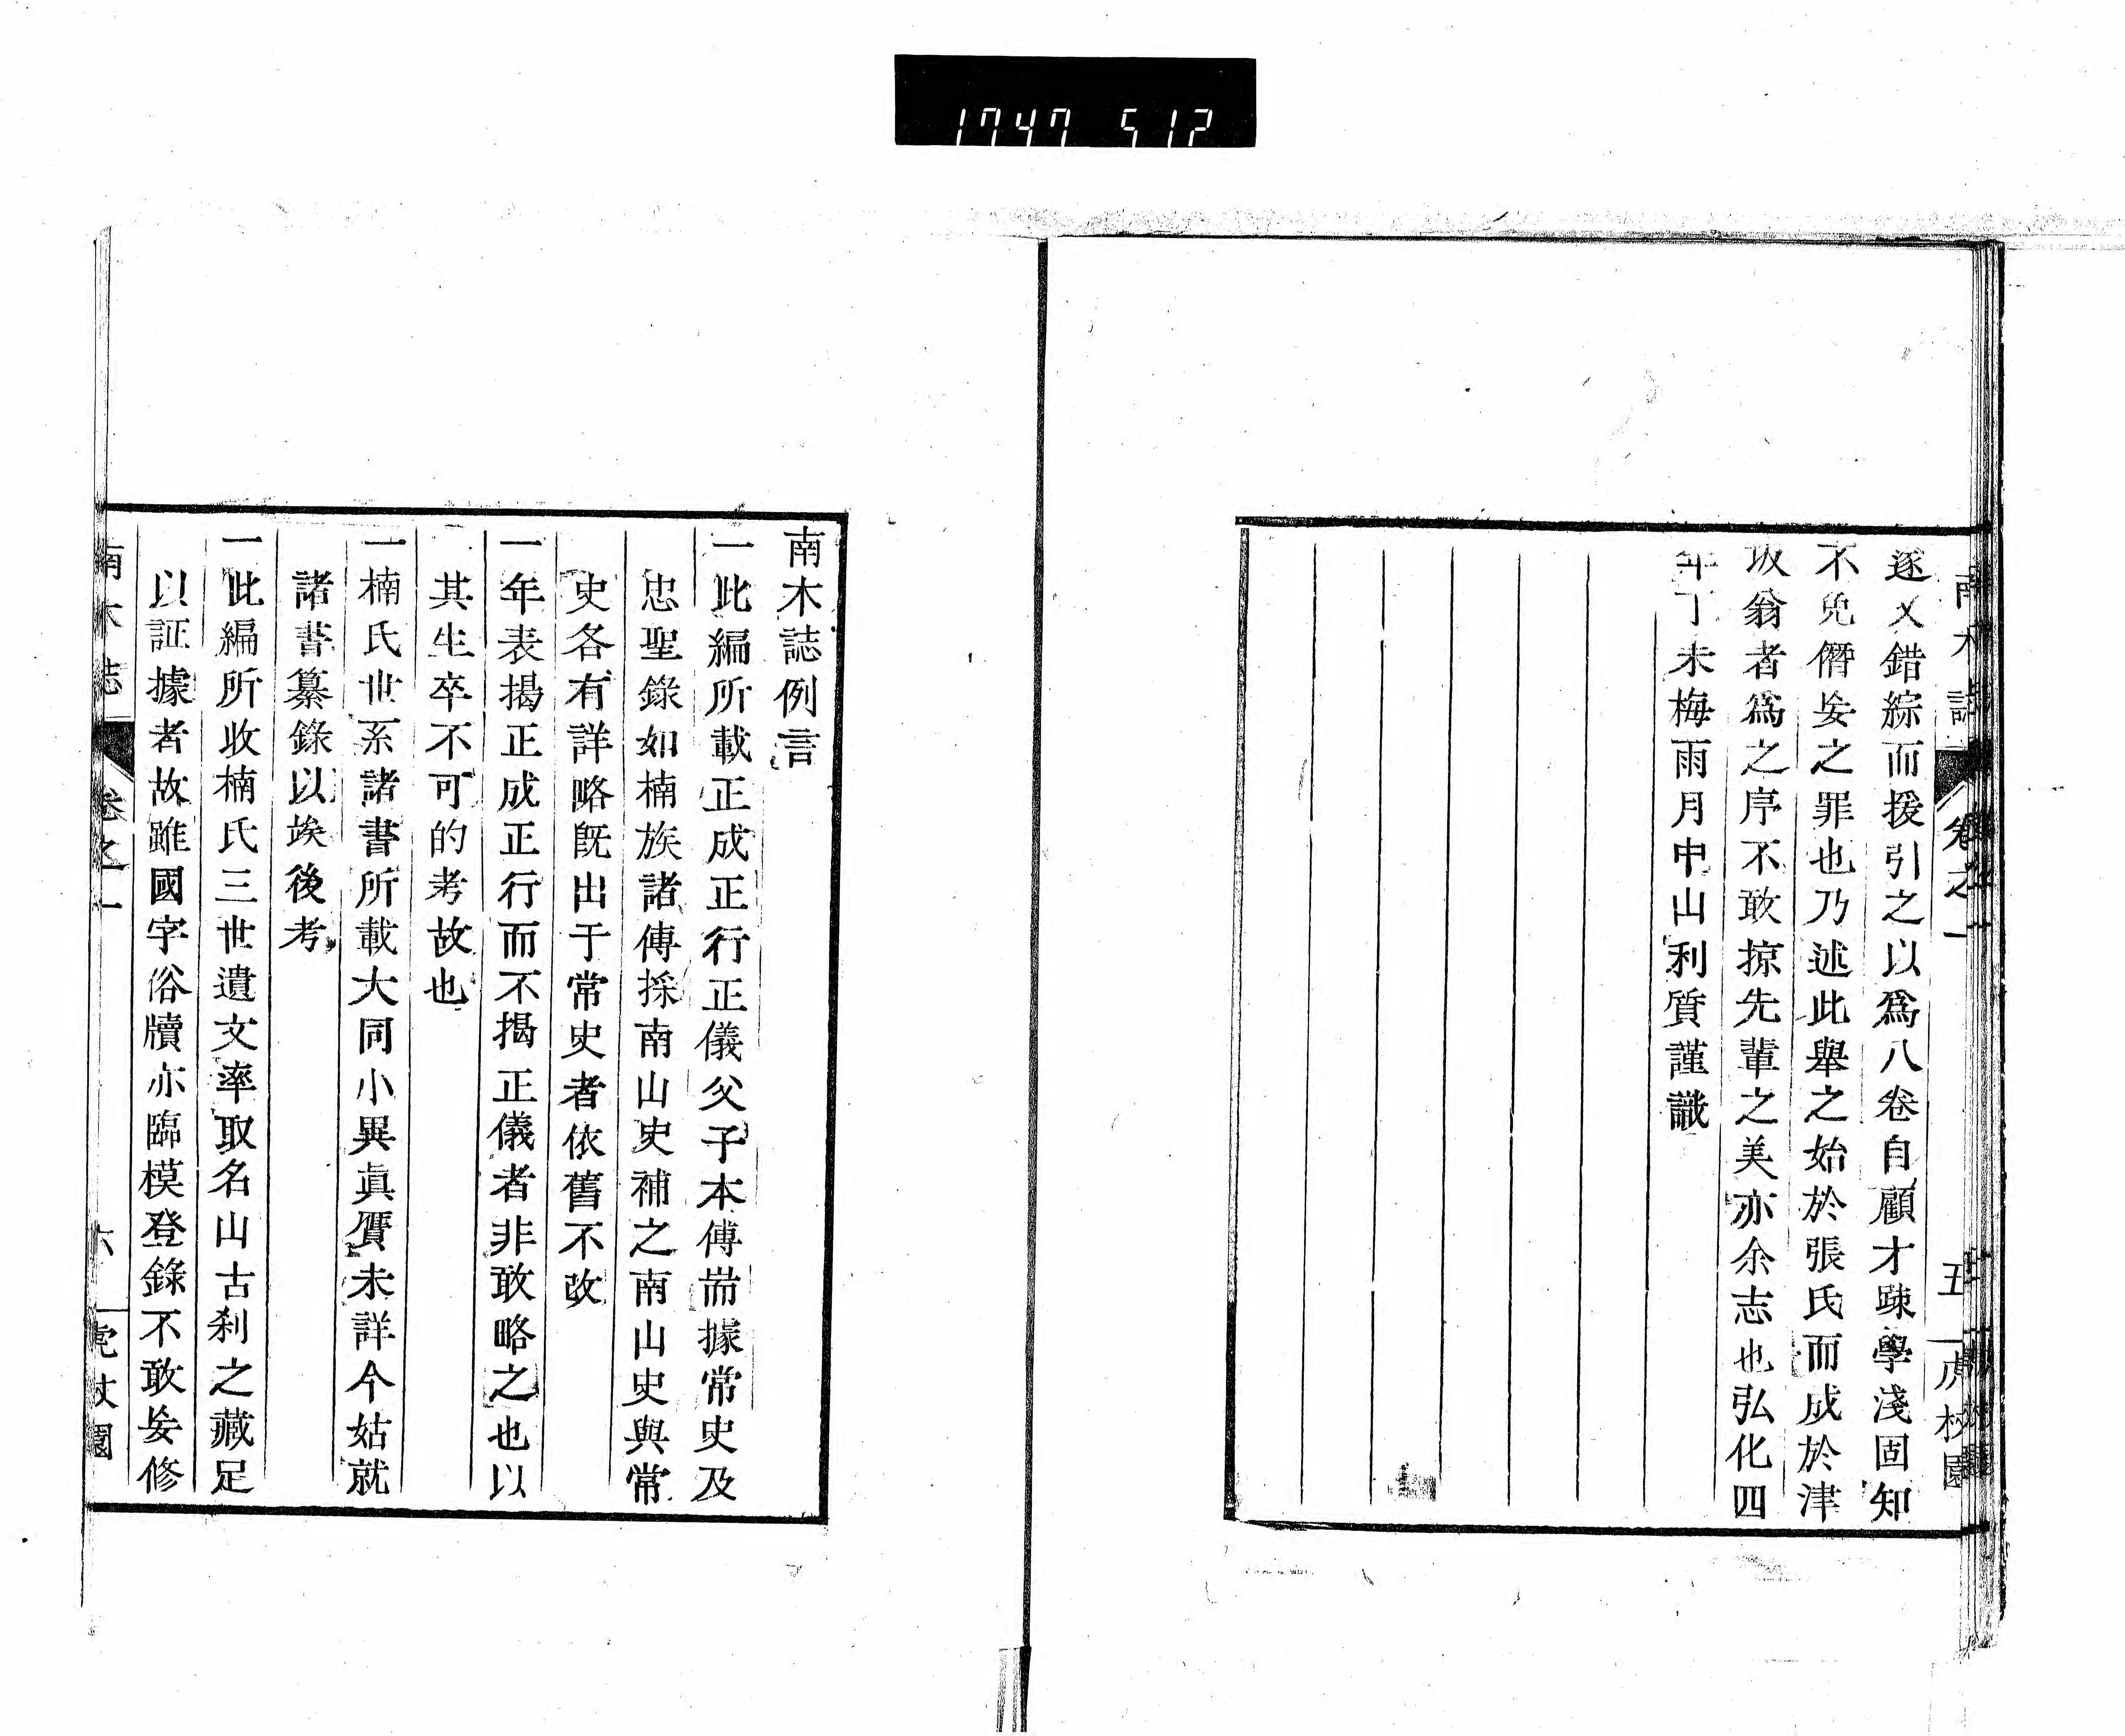 1747 512
南木誌 卷之一 五 虎杖園
遂乂錯綜而援引之以爲八卷自顧才踈學淺固知
不免僭妄之罪也乃述此舉之始於張氏而成於津
坂翁者爲之序不敢掠先輩之美亦余志也弘化四
年丁未梅雨月中山利質謹識
南木誌例言
一此編所載正成正行正儀父子本傳耑據常史及
忠聖錄如楠族諸傳採南山史補之南山史與常
史各有詳略既出于常史者依舊不改
一年表揭正成正行而不揭正儀者非敢略之也以
其生卒不可的考故也
一楠氏世系諸書所載大同小異眞贋未詳今姑就
諸書纂錄以竢後考
一此編所收楠氏三世遺文率取名山古刹之藏足
以証據者故雖國字俗牘亦臨模登錄不敢妄修
南木誌 卷之一 六 虎杖園